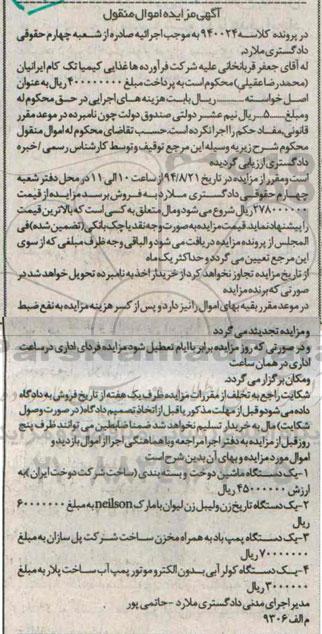 آگهی مزایده اموال منقول
در پرونده کلاسه ۹۴۰۰۲۴ به موجب اجرائیه صادره از شعبه چهارم حقوقی
دادگستری ملارد،
له آقای جعفر قربانخانی علیه شرکت فرآورده ها غذایی کیمیا تک کام ایرانیان
(محمدرضا عقیلی) محکوم است به پرداخت مبلغ ۴۰۰۰۰۰۰۰۰ ریال به عنوان
اصل خواسته ............ ریسال بابت هزینه های اجرایی در حق محکوم له
ومبلغ......۵ ریال نیم عشر دولتی صندوق دولت چون نامبرده در موعد مقرر
قانونی،مفاد حکم را اجرا نکرده است.حسب تقاضای محکوم له اموال منقول
محکوم شرح زیر به وسیله این مرجع توقیف و توسط کارشناس رسمی /خبره
دادگستری ارزیابی گردیده
است ومقرر از مزایده در تاریخ ۹۴/۸/۲۱ از ساعت ۱۰ الی ۱۱ در محل دفتر شعبه
چهارم حقوقی دادگستری ملارد به فروش برسد مزایده از قیمت
۲۷۸۰۰۰۰۰۰ ریال شروع می شود ومال متعلق به کسی است که بالاترین قیمت
را پیشنهاد نماید.قیمت مزایده به صورت وجه نقد یا چک بانکی(تضمین شده)فی
المجلس از برنده مزایده دریافت می شود و الباقی وجه ظرف مبلغی که از سوی
این مرجع تعیین می گردد و حداکثر یک ماه
از تاریخ مزایده تجاوز نخواهد کرد از خریدار اخذ به نامبرده تحویل خواهد شد در
صورتی که برنده مزایده
در موعد مقرر بقیه بهای اموال را نپردازد و پس از کسر هزینه مزایده به نفع ضبط
و مزایده تجدید می گردد
و در صورتی که روز مزایده برابر با ایام تعطیل شود مزایده فردای اداری در ساعت
اداری در همان ساعت
ومکان برگزار می گردد.
شکایت راجع به تخلف از مقررات مزایده ظرف یک هفته از تاریخ فروش به دادگاه
داده می شود و قبل از مهلت مذکور یا قبل از اتخاذ تصمیم دادگاه( در صورت وصول
شکایت) مال به خریدار تسلیم نخواهد شد ضمنا طالبین می توانند ظرف پنج
روز قبل از مزایده به دفتر اجرا مراجعه و با هماهنگی اجرا از اموال بازدید و
اموال مورد مزایده و بهای آن بدین شرح است
۱-یک دستگاه ماشین دوخت و بسته بندی (ساخت شرکت دوخت ایران )به
ارزش ۴۵۰۰۰۰۰۰ ریال
۲-یک دستگاه تاریخ زن ولیبل زن لیوان با مارک neilson به مبلغ ۶۰۰۰۰۰۰۰
ریال
۳-یک دستگاه پمپ باد به همراه مخزن ساخت شرکت پل سازان به مبلغ
۷۰۰۰۰۰۰۰ ریال
۴-یک دستگاه کولر آبی بدون الکترو موتور پمپ آب ساخت پلار به مبلغ
۳۰۰۰۰۰۰ ریال
مدیر اجرای مدنی دادگستری ملارد -حاتمی پور
م الف ۹۳۰۶